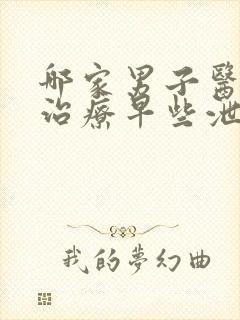 邮家男子醫
治療早些泄
我的夢幻曲